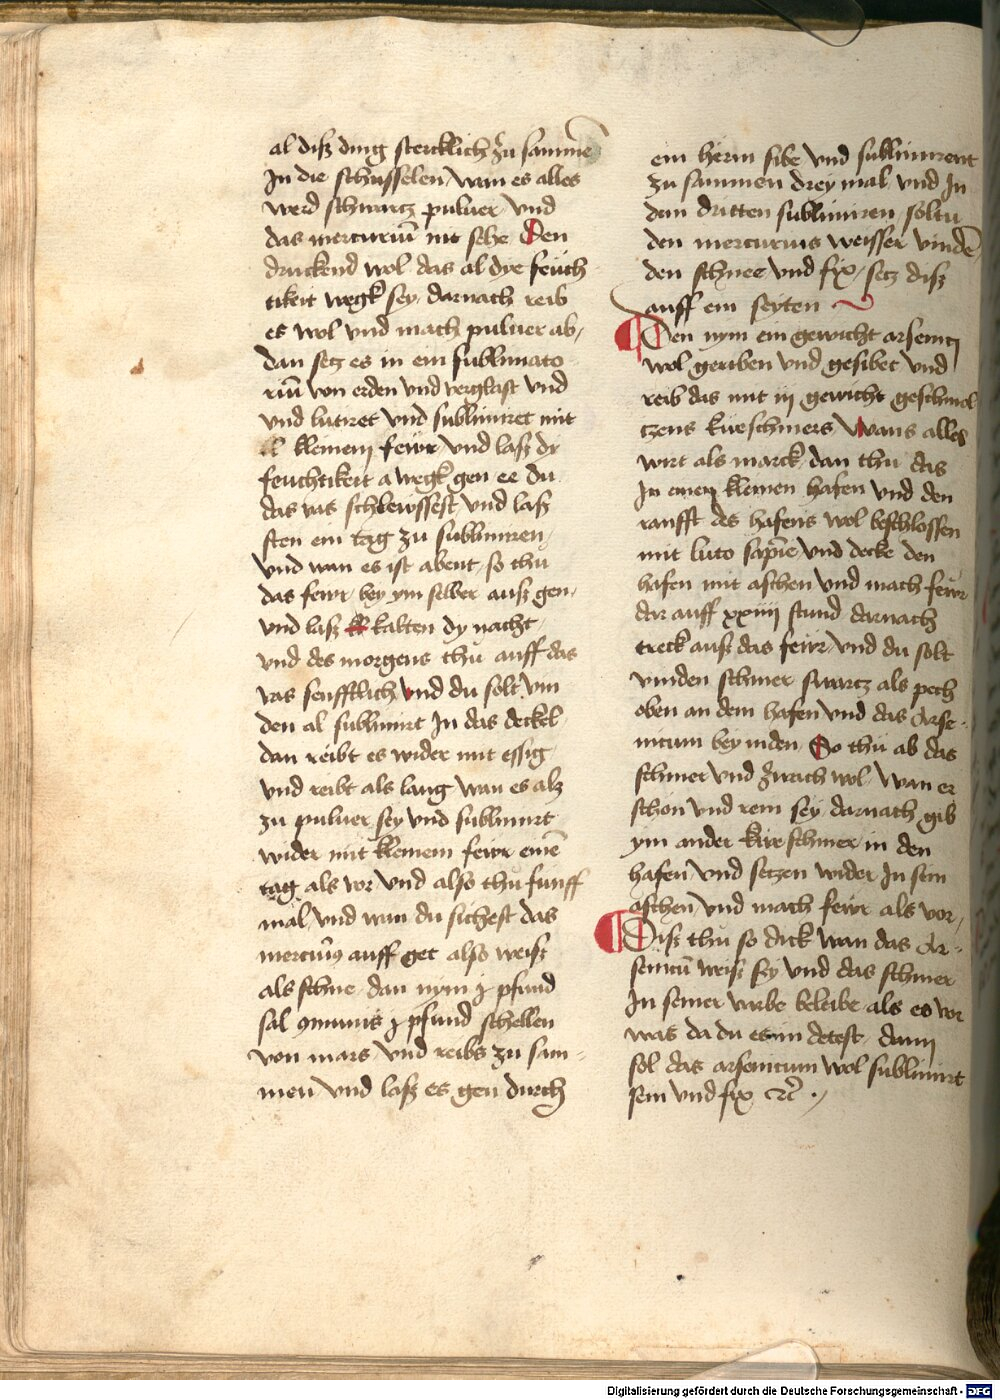 al disz ding stercklich zu samme͂
In die schusselen / wan es alles
werd schwartz puluer / vnd
das mercuriu͂ nit sehe Den
druckend wol das al dye feuch
tikeit wegk sey / darnach reib
es wol vnd mach puluer ab /
dan setz es in ein sublimato
riu͂ von erden vnd verglast vnd
vnd lutiret vnd sublimiret mit
kleinem fewr / vnd lasz dy
feuchtikeit a wegk gen ee du
das vas schlewssest vnd lasz
sten ein tag zu sublimiren /
vnd wan es ist abent / so thu
das fewr / bey ym selber ausz gen /
vnd lasz kalten dy nacht /
vnd des morgens thu auff das
vas senfftlich vnd du solt vin
den al sublimirt In das deckel
dan reibt es wider mit essig /
vnd reibt als lang wan es alz
zu puluer sey vnd sublimirt
wider mit kleinem fewr eine͂
tag als vor vnd also thu funff
mal / vnd wan du sichest das
mercuri9 auff get also weisz
als schne / dan nym j pfund
sal 9munis j pfund schellen
von mars / vnd reibs zu sam -
men vnd lasz es gen durch
ein herin sibe vnd sublimirent
zu sammen drey mal / vnd In
dem dritten sublimiren / soltu
den mercurius weisser vinde͂
den schnee vnd fix / setz disz
auff ein seyten
Den nym ein gewicht arsenici
wol geriben vnd gesibet vnd
reib das mit iij gewicht geschmol
tzens kueschmers / Wans alles
wirt als marck / dan thu das
In einen kleinen hafen vnd den
ranfft des hafens wol beschlossen
mit luto sapie͂ / vnd decke den
hafen mit aschen vnd mach fewr
dar auff xxiiij stund darnach
treck ausz das fewr / vnd du solt
vinden schmer swartz als pech
oben an dem hafen vnd das Arse -
nicum bey niden / So thu ab das
schmer vnd zwach wol / wan er
schon vnd rein sey / darnach gib
ym ander kwe schmer in den
hafen vnd setzen wider In sein
aschen vnd mach fewr als vor /
Disz thu so dick wan das Ar -
senicu͂ weisz sey vnd das schmer
In seiner varbe beleibe als es vor
was da du es in detest / dann
sol das arsenicum wol sublimirt
sein vnd fix &c͂ . /
Digitalisierung gefördert durch die Deutsche Forschungsgemeinschaft - DFG